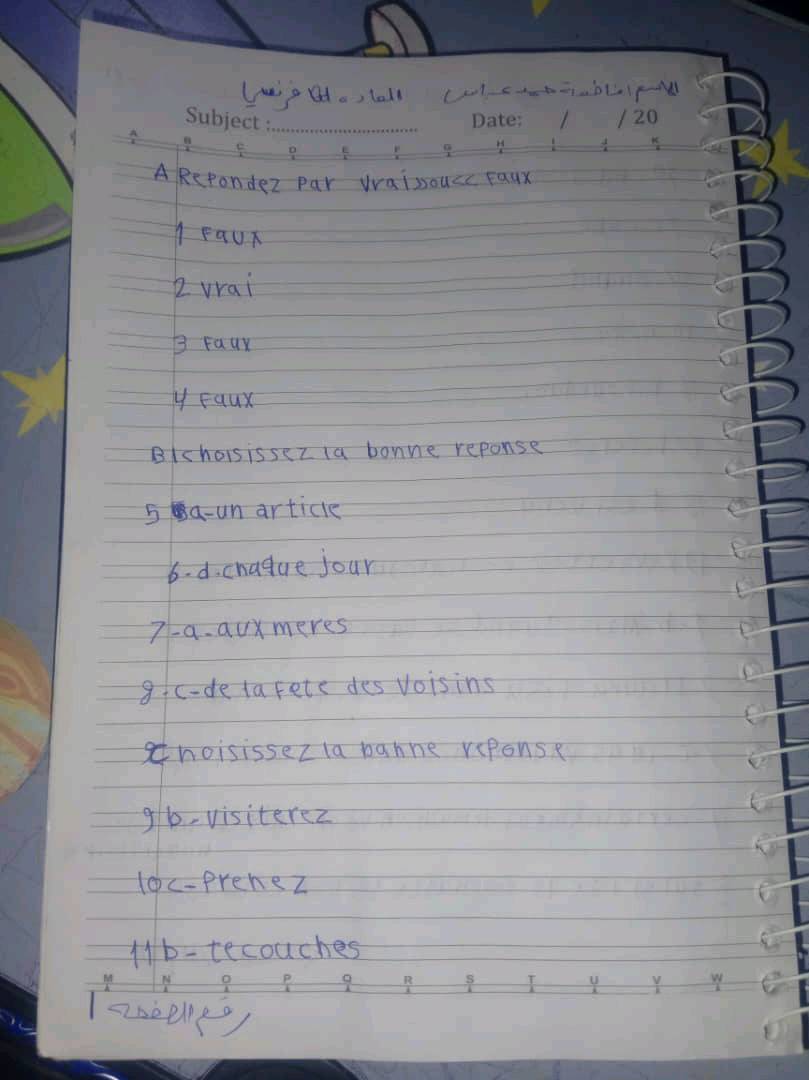 الاسم / فاطمة حميد عباس المادة / الفرنسي
Subject :.............................. Date: / / 20
A B C D E F G H I J K
A Repondez par vrais ou faux
1 Faux
2 vrai
3 Faux
4 Faux
B choisissez la bonne reponse
5 a-un article
6-d.chaque jour
7-a-aux meres
8-c-de la fete des voisins
choisissez la bonne reponse
9 b-visiterez
10 c-Prenez
11 b-tecouches
M N O P Q R S T U V W
رقم الصفحة 1